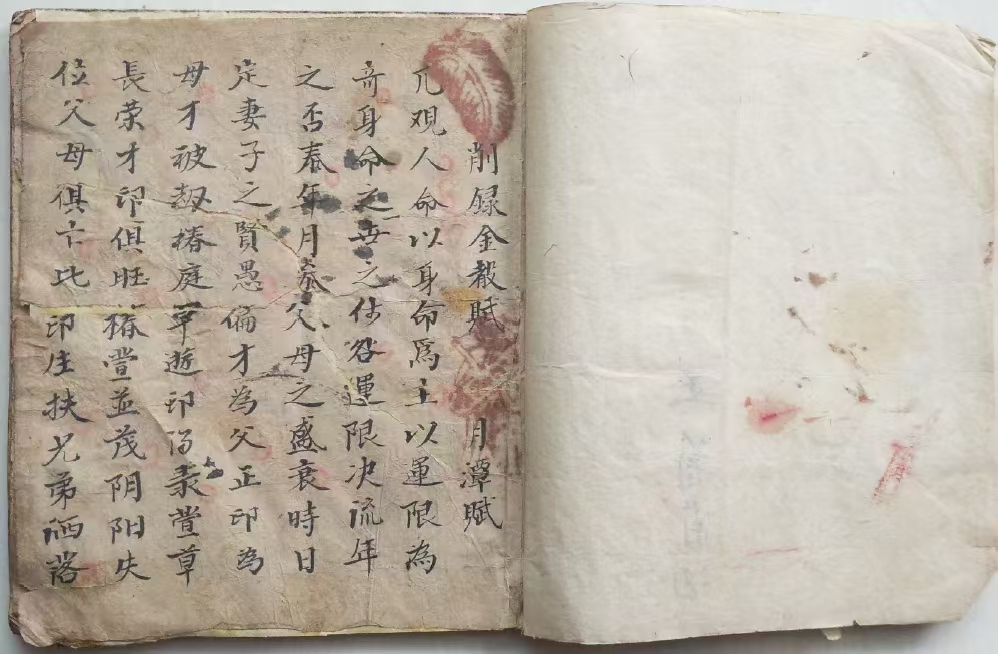 削録金殺賦 月潭賦
凢观人命以身命爲主以運限為
竒身命之毋之付咎運限决流年
之否泰年月叅父母之盛衰時日
定妻子之賢愚偏才為父正印為
母才被刼椿庭早遊印得禄萱草
長荣才印俱旺椿萱並茂阴阳失
位父母俱亡比印生扶兄弟洒落